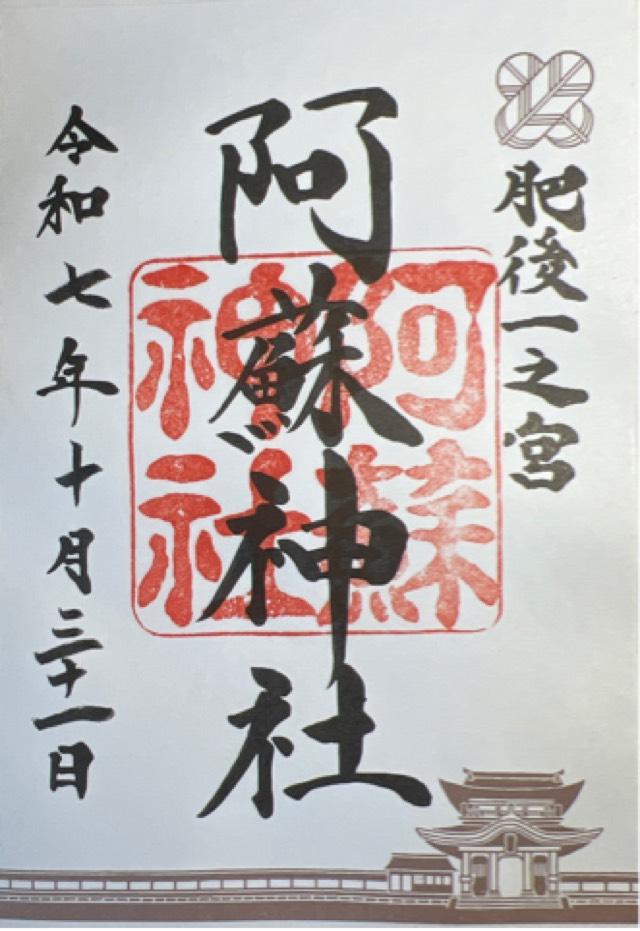 肥後一之宮
阿蘇神社
阿蘇
神社
令和七年十月三十一日